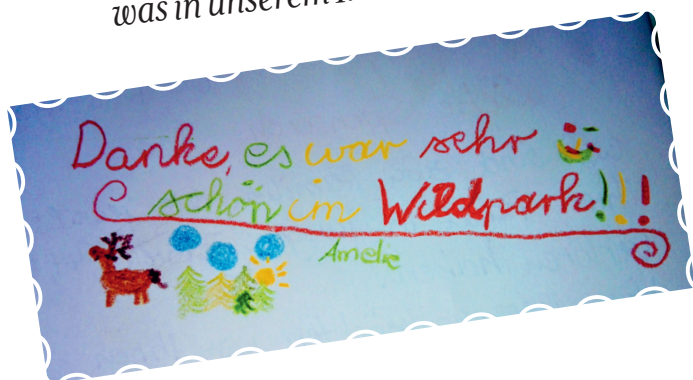 was in unserem
Danke, es war sehr
schön im Wildpark!!!
Amelie